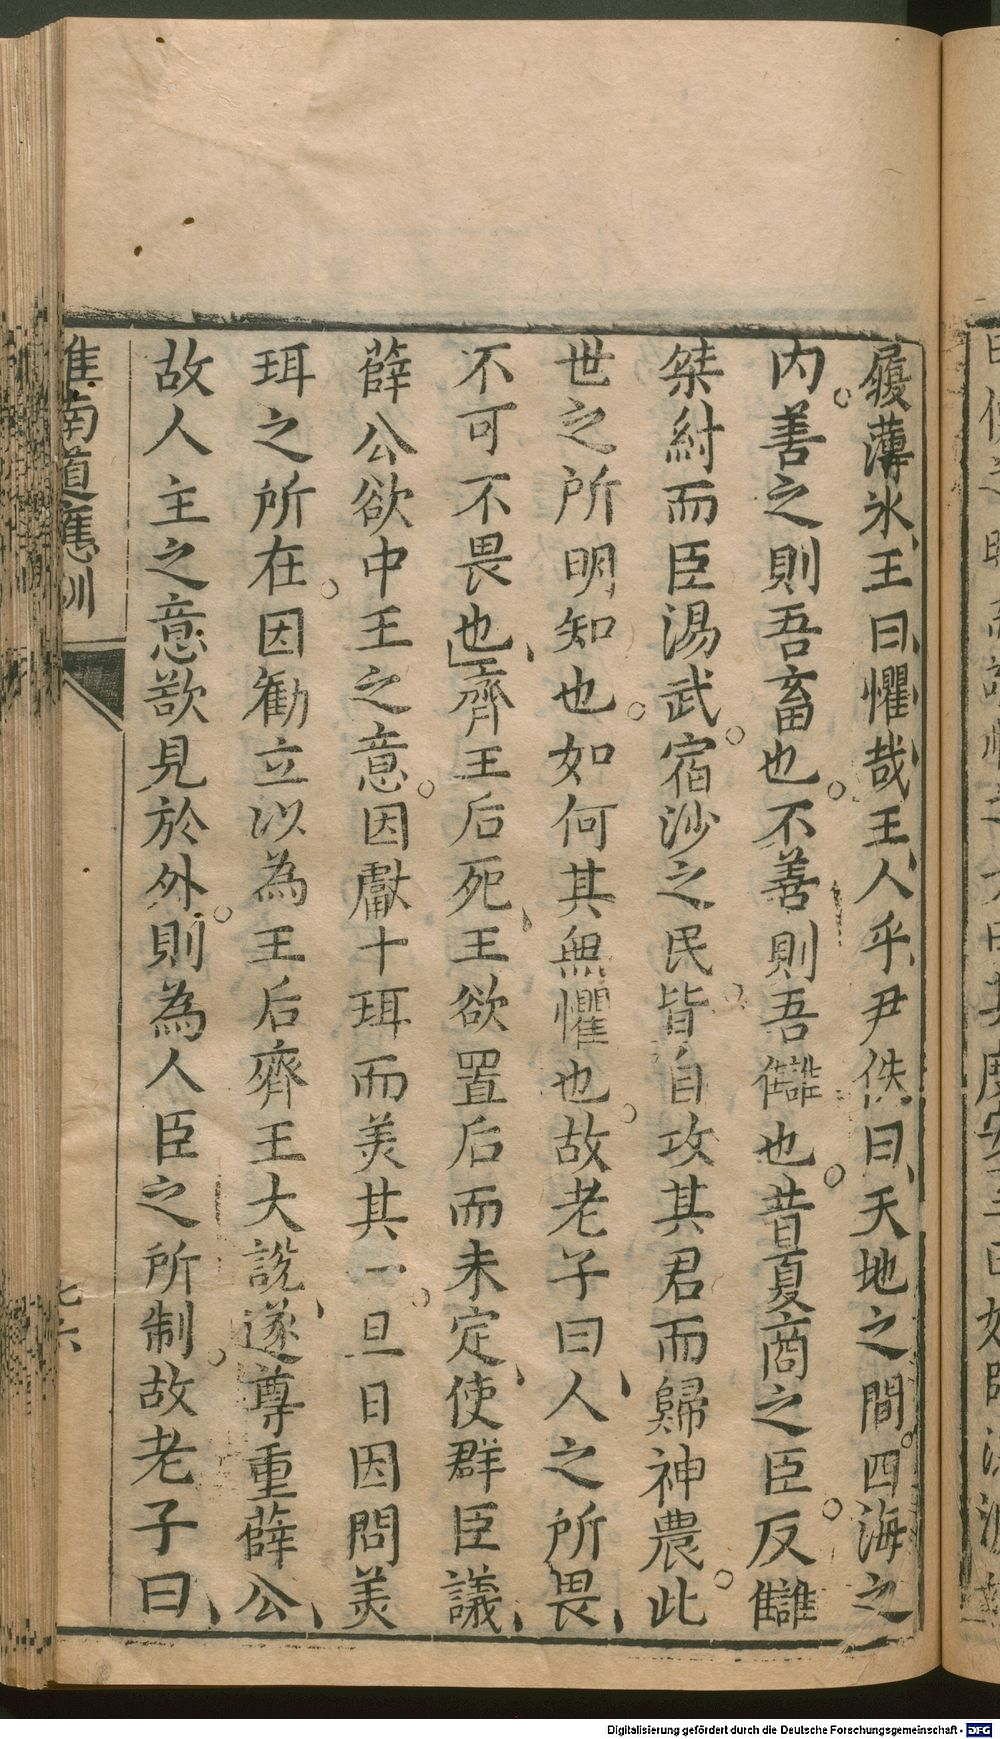 履薄氷王曰懼哉王人乎尹佚曰天地之間四海之
内善之則吾畜也不善則吾讎也昔夏商之臣反讎
桀紂而臣湯武宿沙之民皆自攻其君而歸神農此
世之所明知也如何其無懼也故老子曰人之所畏
不可不畏也齊王后死王欲置后而未定使群臣議
薛公欲中王之意因獻十珥而美其一旦日因問美
珥之所在因勸立以為王后齊王大説遂尊重薛公
故人主之意欲見於外則為人臣之所制故老子曰
淮南道應訓
七六
Digitalisierung gefördert durch die Deutsche Forschungsgemeinschaft - DFG